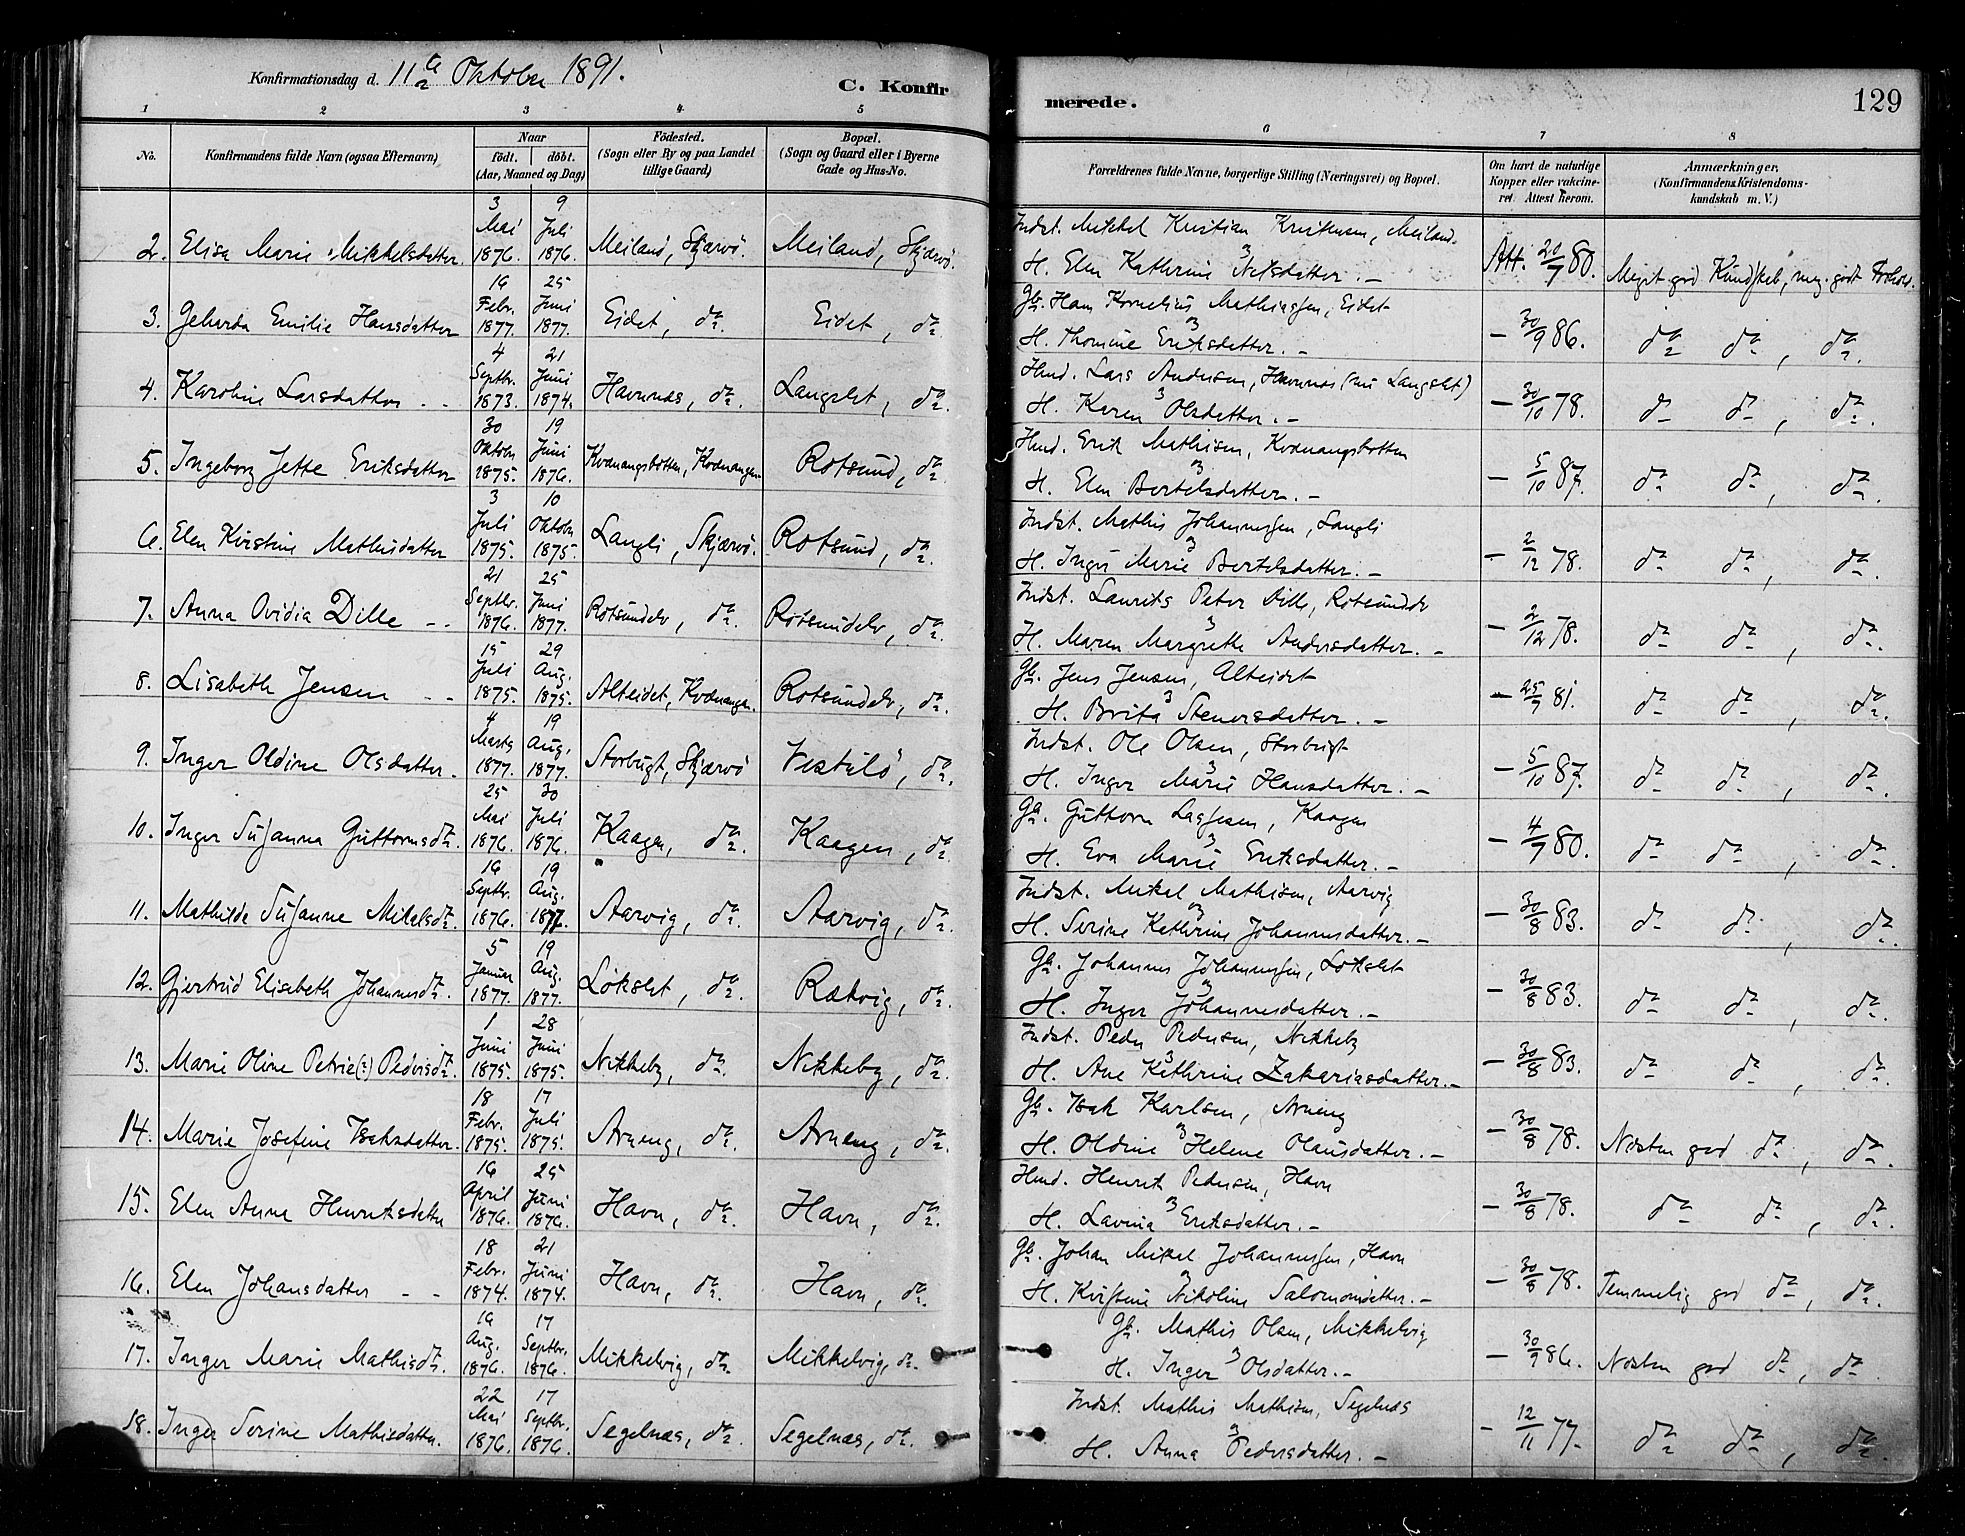 Konfirmationsdag d. 11te Oktober 1891.
C. Konfirmerede.
129
1 2 3 4 5 6 7 8
No.
Konfirmandens fulde Navn (ogsaa Efternavn)
Naar
födt. döbt.
(Aar, Maaned og Dag)
Födested.
(Sogn eller By og paa Landet
tillige Gaard)
Bopæl.
(Sogn og Gaard eller i Byerne
Gade og Hus-No.
Forældrenes fulde Navne, borgerlige Stilling (Næringsvei) og Bopæl.
Om havt de naturlige
Kopper eller vakcine-
ret. Attest herom.
Anmærkninger,
(Konfirmandens Kristendoms-
kundskab m. V.)
2. Elisa Marie Mikkelsdatter. 3 Mai 1876. 9 Juli 1876. Meiland, Skjærvö. Meiland, Skjærvö.
Indst. Mikkel Kristian Kristensen, Meiland.
H. Elen Kathrine Nilsdatter. – Att. 20/7 80. Meget god Kundskab, meg. godt Forhold.
3. Gehurda Emilie Hansdatter 16 Febr. 1877. 25 Juni 1877. Eidet, do. Eidet, do.
Gbr. Hans Kornelius Mathiassen, Eidet
H. Thomine Eriksdatter. – – 30/9 86. do do, do.
4. Karoline Larsdatter – – 4 Septbr. 1873. 21 Juni 1874. Havnnæs, do. Langslet, do.
Hmd. Lars Andersen, Havnnæs (nu Langslet)
H. Karen Olsdatter. – – 30/10 78. do do, do.
5. Ingeborg Jette Eriksdatter 30 Oktober 1875. 19 Juni 1876. Kvænangsbotten, Kvænangen Rotsund, do.
Hmd. Erik Mathisen, Kvænangsbotten
H. Elen Bertelsdatter. – – 5/10 87. do do, do.
6. Elen Kirstine Mathisdatter 3 Juli 1875. 10 Oktober 1875. Langli, Skjærvö. Rotsund, do.
Indst. Mathis Johannessen, Langli
H. Inger Marie Bertelsdatter. – – 2/12 78. do do, do.
7. Anna Ovidia Dille – – 21 Septbr. 1876. 25 Juni 1877. Rotsundelv, do. Rotsundelv, do.
Indst. Laurits Peter Dille, Rotsundelv
H. Maren Margrethe Andersdatter. – – 2/12 78. do do, do.
8. Lisabeth Jensen – – 15 Juli 1875. 29 Aug. 1875. Alteidet, Kvænangen. Rotsundelv, do.
Gbr. Jens Jensen, Alteidet
H. Brita Stenersdatter. – – 25/9 81. do do, do.
9. Inger Oldine Olsdatter. 4 Marts 1877. 19 Aug. 1877. Storbugt, Skjærvö Vestulö, do.
Indst. Ole Olsen, Storbugt
H. Inger Marie Hansdatter. – – 5/10 87. do do, do.
10. Inger Susanna Guttormsdr. 25 Mai 1876. 30 Juli 1876. Kaagen, do. Kaagen, do.
Gbr. Guttorm Lassesen, Kaagen
H. Eva Marie Eriksdatter. – – 4/7 80. do do, do.
11. Mathilde Susanne Mikalsdr. 16 Septbr. 1876. 19 Aug. 1877. Aarvig, do. Aarvig, do.
Indst. Mikal Mathisen, Aarvig
H. Serine Kathrine Johannesdatter. – – 30/8 83. do do, do.
12. Gjertrud Elisabeth Johannesdr. 5 Januar 1877. 19 Aug. 1877. Lökslet, do. Rækvig, do.
Gbr. Johannes Johannessen, Lökslet
H. Inger Johannesdatter. – – 30/8 83. do do, do.
13. Marie Oline Petrie(?) Pedersdr. 1 Juni 1875. 28 Juni 1875. Nikkeby, do. Nikkeby, do.
Indst. Peder Pedersen, Nikkeby
H. Ane Kathrine Zakariasdatter. – – 30/8 83. do do, do.
14. Marie Josefine Isaksdatter. 18 Febr. 1875. 17 Juli 1875. Arneng, do. Arneng, do.
Gbr. Isak Karlsen, Arneng
H. Oldine Helene Olausdatter. – – 30/8 78. Næsten god do, do.
15. Elen Anna Henriksdatter 16 April 1876. 25 Juni 1876. Havn, do. Havn, do.
Hmd. Henrik Pedersen, Havn
H. Lavina Eriksdatter. – – 30/8 78. do do, do.
16. Elen Johansdatter – – 18 Febr. 1874. 21 Juni 1874. Havn, do. Havn, do.
Gbr. Johan Mikal Johannessen, Havn
H. Kristine Nikoline Salomonsdatter. – – 30/8 78. Temmelig god do, do.
17. Inger Marie Mathisdr. 19 Aug. 1876. 17 Septbr. 1876. Mikkelvig, do. Mikkelvig, do.
Gbr. Mathis Olsen, Mikkelvig
H. Inger Olsdatter. – – 30/9 86. Næsten god do, do
18. Inger Serine Mathisdatter. 22 Mai 1876. 17 Septbr. 1876. Segelnæs, do. Segelnæs, do.
Indst. Mathis Mathisen, Segelnæs
H. Anna Pedersdatter. – – 12/11 77. do do, do.